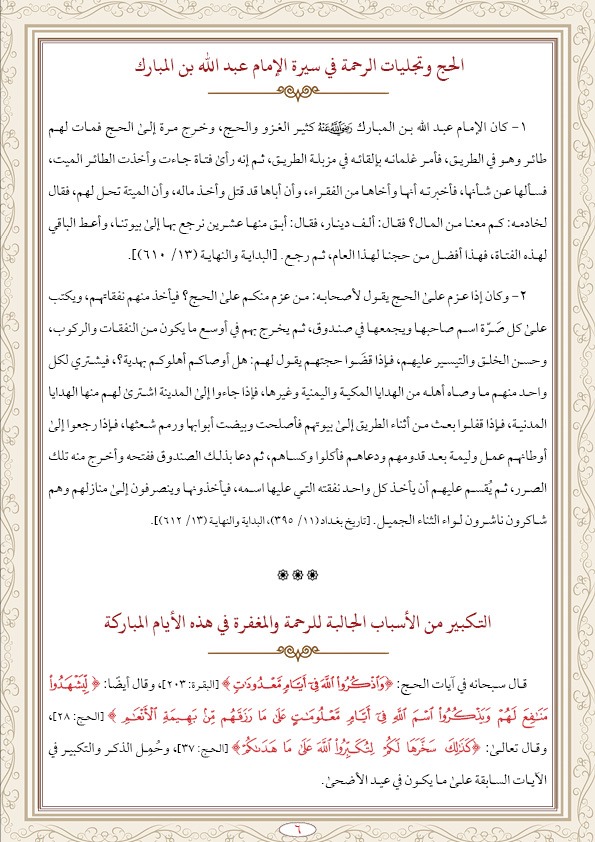 الحج وتجليات الرحمة في سيرة الإمام عبد الله بن المبارك
١- كان الإمام عبد الله بن المبارك رَضِيَ اللَّهُ عَنْهُ كثير الغزو والحج، وخرج مرة إلىٰ الحج فمات لهم
طائر وهو في الطريق، فأمر غلمانه بإلقائه في مزبلة الطريق، ثم إنه رأىٰ فتاة جاءت وأخذت الطائر الميت،
فسألها عن شأنها، فأخبرته أنها وأخاها من الفقراء، وأن أباها قد قتل وأخذ ماله، وأن الميتة تحل لهم، فقال
لخادمه: كم معنا من المال؟ فقال: ألف دينار، فقال: أبق منها عشرين نرجع بها إلىٰ بيوتنا، وأعط الباقي
لهذه الفتاة، فهذا أفضل من حجنا لهذا العام، ثم رجع. [البداية والنهاية (١٣/ ٦١٠)].
٢- وكان إذا عزم علىٰ الحج يقول لأصحابه: من عزم منكم علىٰ الحج؟ فيأخذ منهم نفقاتهم، ويكتب
علىٰ كل صَرّة اسم صاحبها ويجمعها في صندوق، ثم يخرج بهم في أوسع ما يكون من النفقات والركوب،
وحسن الخلق والتيسير عليهم، فإذا قضَوا حجتهم يقول لهم: هل أوصاكم أهلوكم بهدية؟، فيشتري لكل
واحد منهم ما وصاه أهله من الهدايا المكية واليمنية وغيرها، فإذا جاءوا إلىٰ المدينة اشترىٰ لهم منها الهدايا
المدنية، فإذا قفلوا بعث من أثناء الطريق إلىٰ بيوتهم فأصلحت وبيضت أبوابها ورمم شعثها، فإذا رجعوا إلىٰ
أوطانهم عمل وليمة بعد قدومهم ودعاهم فأكلوا وكساهم، ثم دعا بذلك الصندوق ففتحه وأخرج منه تلك
الصرر، ثم يُقسم عليهم أن يأخذ كل واحد نفقته التي عليها اسمه، فيأخذونها وينصرفون إلىٰ منازلهم وهم
شاكرون ناشرون لواء الثناء الجميل. [تاريخ بغداد (١١/ ٣٩٥)، البداية والنهاية (١٣/ ٦١٢)].
التكبير من الأسباب الجالبة للرحمة والمغفرة في هذه الأيام المباركة
قال سبحانه في آيات الحج: ﴿وَاذْكُرُوا۟ اللَّهَ فِىٓ أَيَّامٍ مَّعْدُودَٰتٍ﴾ [البقرة: ٢٠٣]، وقال أيضًا: ﴿لِّيَشْهَدُوا۟
مَنَٰفِعَ لَهُمْ وَيَذْكُرُوا۟ اسْمَ اللَّهِ فِىٓ أَيَّامٍ مَّعْلُومَٰتٍ عَلَىٰ مَا رَزَقَهُم مِّنۢ بَهِيمَةِ الْأَنْعَٰمِ﴾ [الحج: ٢٨]،
وقال تعالىٰ: ﴿كَذَٰلِكَ سَخَّرَهَا لَكُمْ لِتُكَبِّرُوا۟ اللَّهَ عَلَىٰ مَا هَدَىٰكُمْ﴾ [الحج: ٣٧]، وحُمِل الذكر والتكبير في
الآيات السابقة علىٰ ما يكون في عيد الأضحىٰ.
٦